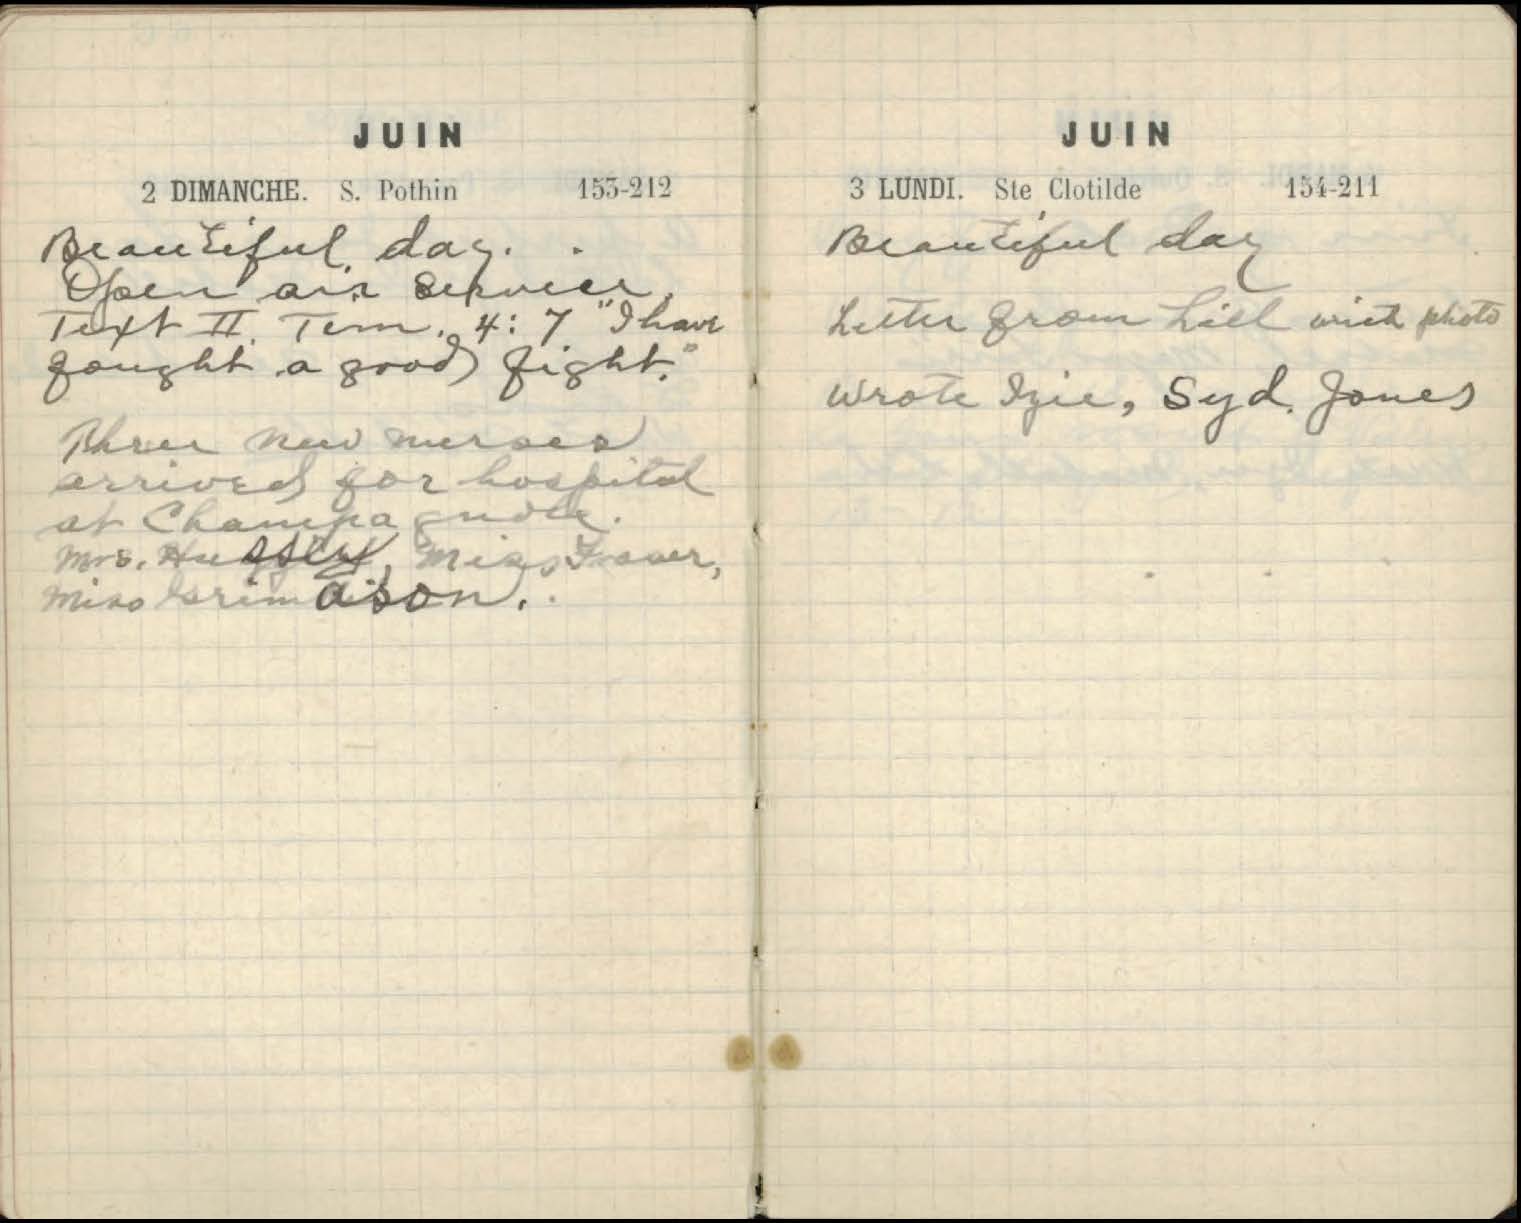 JUIN
2 DIMANCHE. S. Pothin 153-212
Beautiful day.
Open air service.
Text II Tim. 4:7 "I have
fought a good fight."
Three new nurses
arrived for hospital
at Champagnole.
Mrs. Hussey, Miss
Miss Grimason.
JUIN
3 LUNDI. Ste Clotilde 154-211
Beautiful day
Letter from Lill with photo
Wrote Izie, Syd. Jones